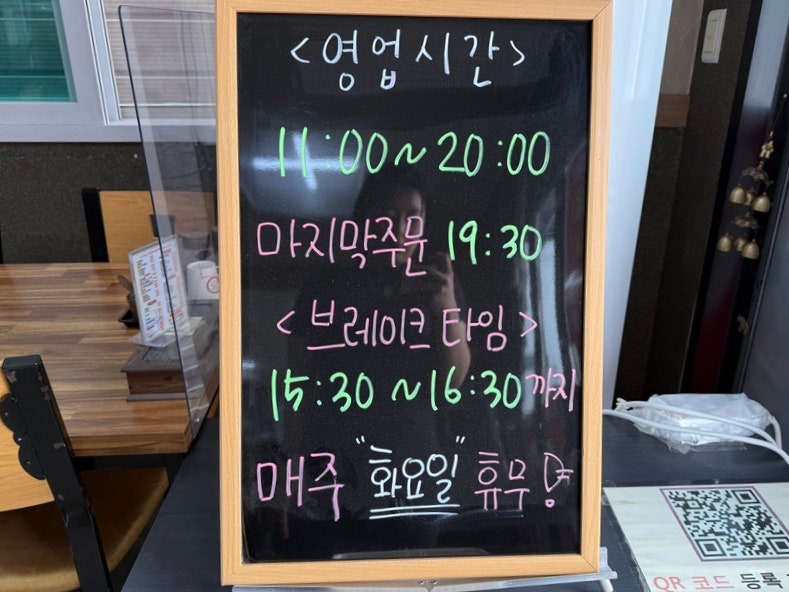 <영업시간>
11:00~20:00
마지막주문 19:30
<브레이크 타임>
15:30~16:30까지
매주 "화요일" 휴무!
QR 코드 등록